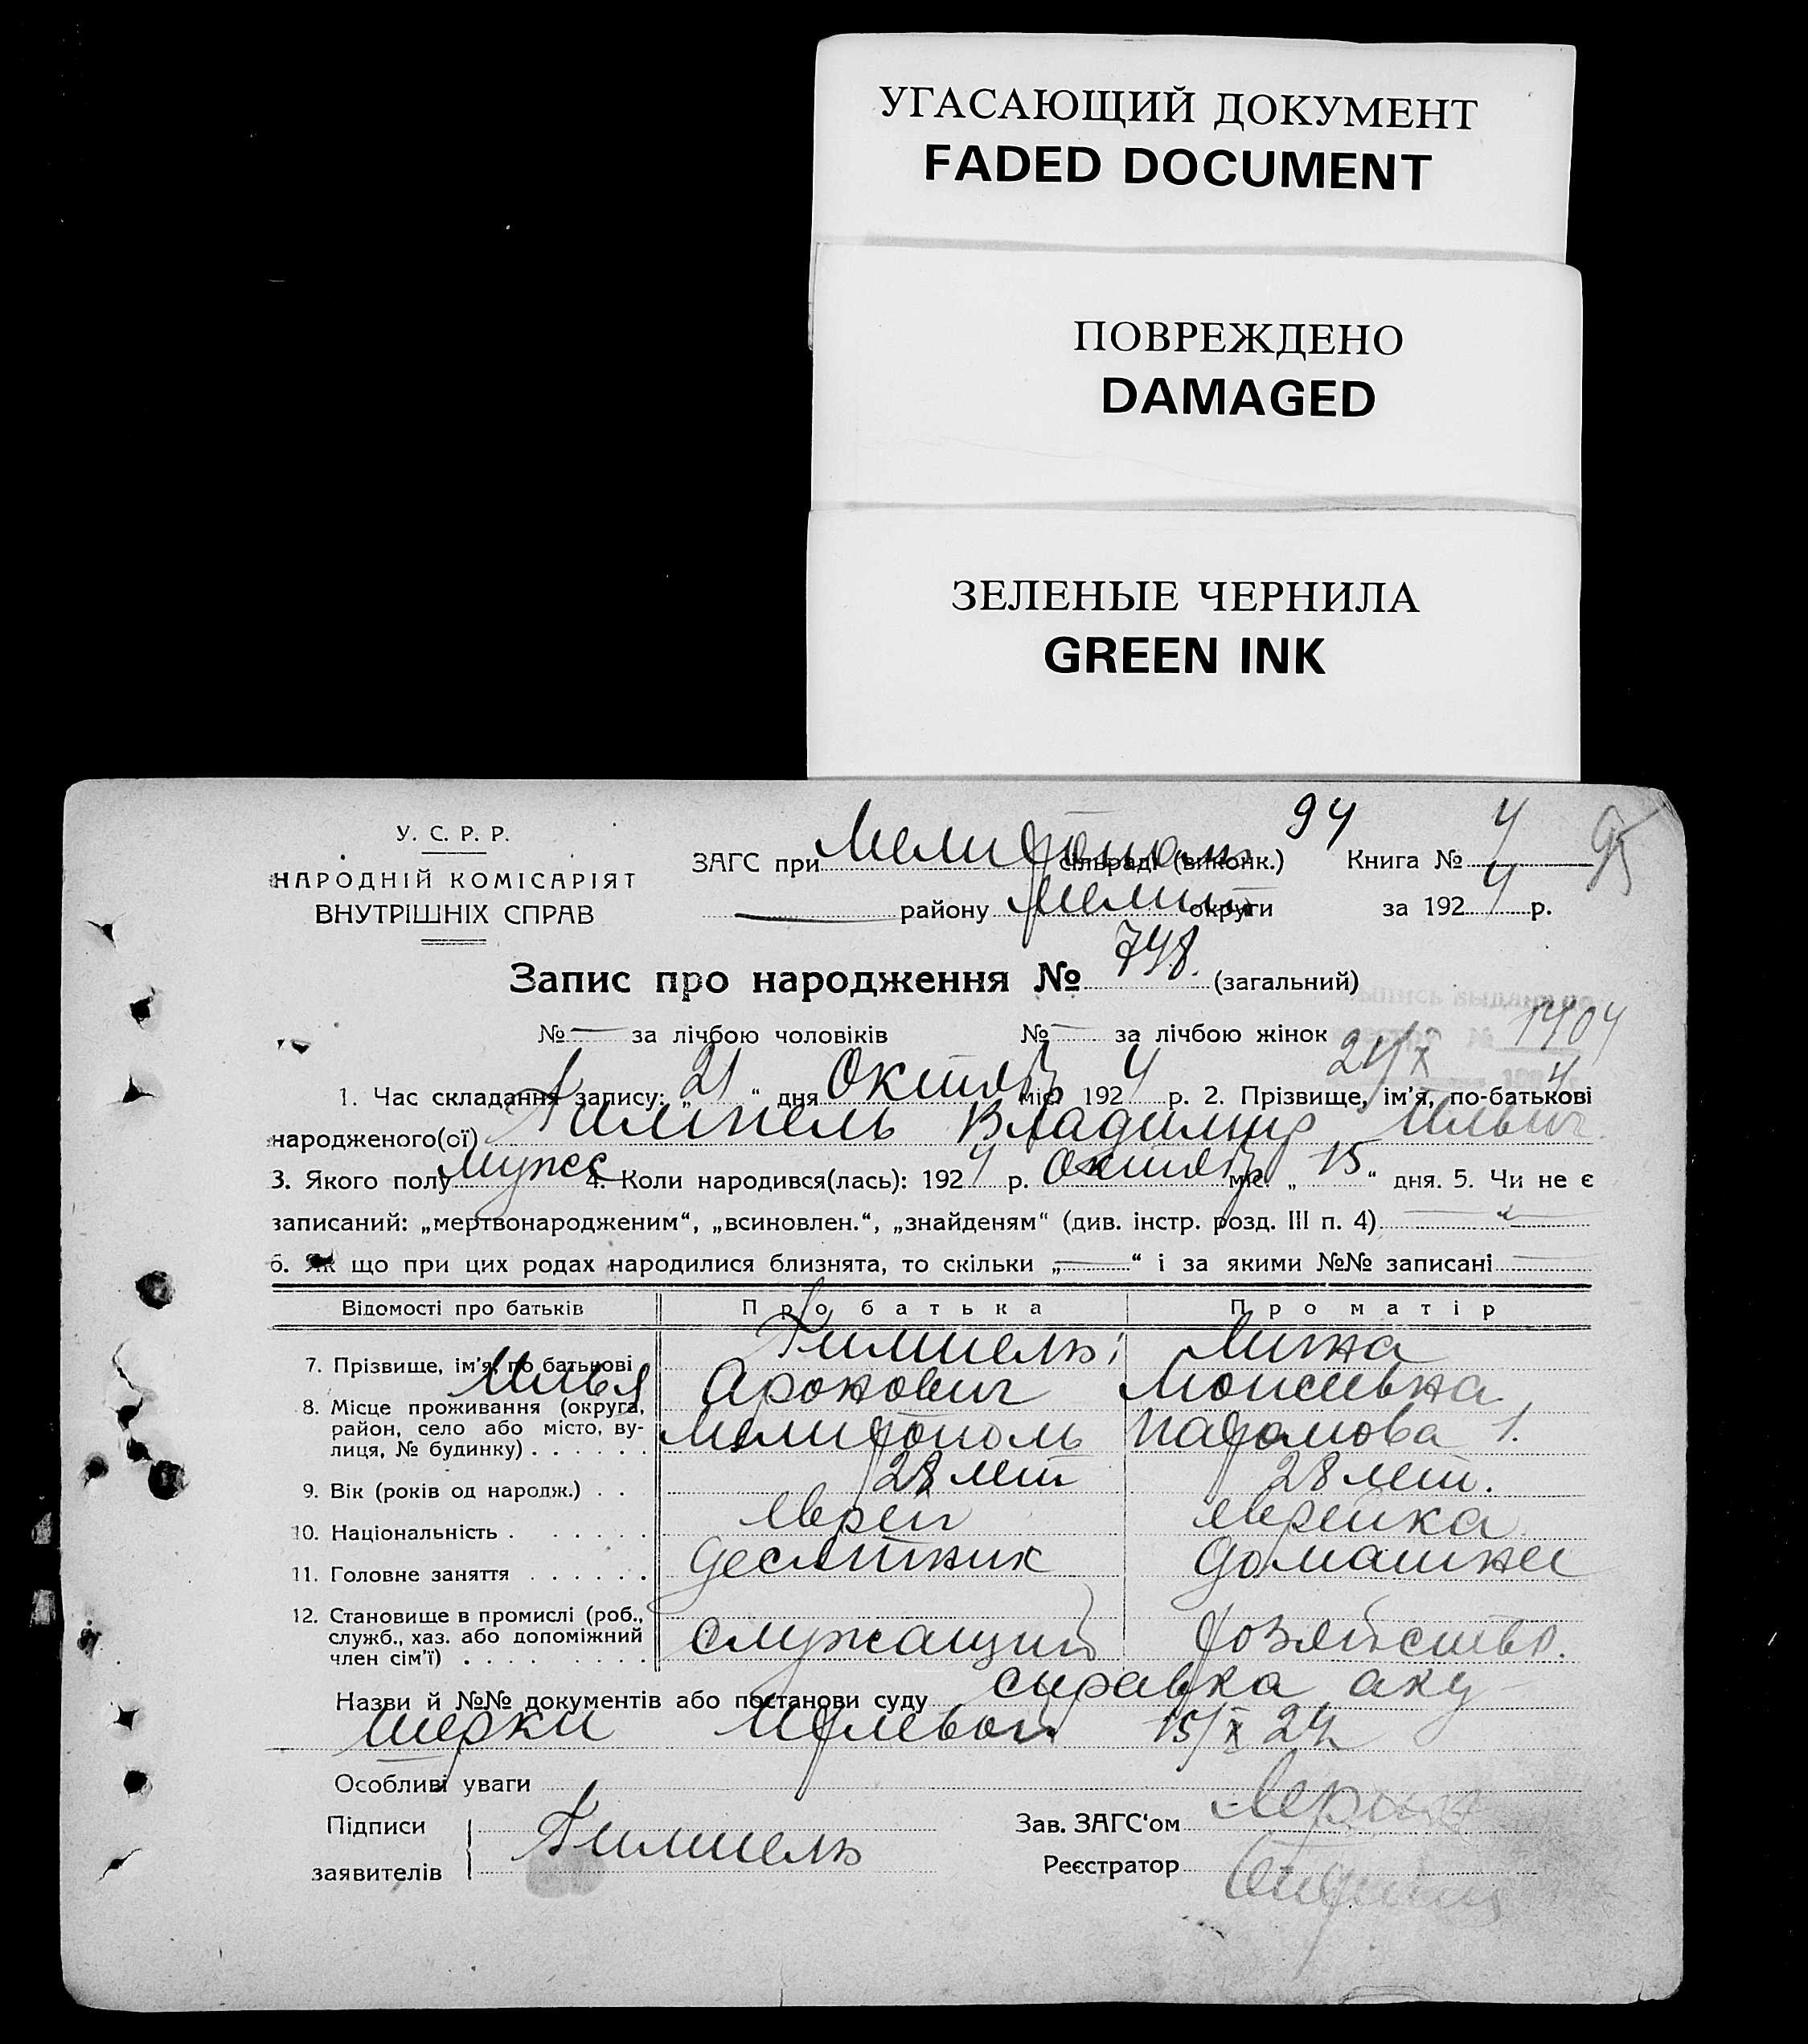 УГАСАЮЩИЙ ДОКУМЕНТ
FADED DOCUMENT
ПОВРЕЖДЕНО
DAMAGED
ЗЕЛЕНЫЕ ЧЕРНИЛА
GREEN INK
94
95
У. С. Р. Р.
НАРОДНІЙ КОМІСАРІЯТ
ВНУТРІШНІХ СПРАВ
ЗАГС при Мелитополь сільраді (виконк.) Книга № 4
району Мелит округи за 1924 р.
Запис про народження № 748. (загальний)
№ — за лічбою чоловіків № — за лічбою жінок
Выпись выдана по
№ 1404
24/X 4
1. Час складання запису: „21“ дня Октяб міс. 1924 р. 2. Прізвище, ім'я, по-батькові
народженого(ої) Гимпель Владимир Ильич.
3. Якого полу мужс 4. Коли народився(лась): 1924 р. Октяб міс. „15“ дня. 5. Чи не є
записаний: „мертвонародженим“, „всиновлен.“, „знайденям“ (див. інстр. розд. III п. 4) —
6. Як що при цих родах народилися близнята, то скільки „—“ і за якими №№ записані —
Відомості про батьків Про батька Про матір
7. Прізвище, ім'я, по батькові Гимпель Илья Аронович Моисеевна
8. Місце проживання (округа,
район, село або місто, ву-
лиця, № будинку) Мелитополь 1.
9. Вік (років од народж.) 28 лет 28 лет.
10. Національність еврей еврейка
11. Головне заняття десятник домашнее
12. Становище в промислі (роб.,
служб., хаз. або допоміжний
член сім'ї) служащий хозяйство.
Назви й №№ документів або постанови суду справка аку-
шерки 15/X 24
Особливі уваги
Підписи
заявителів Гимпель
Зав. ЗАГС'ом
Реєстратор